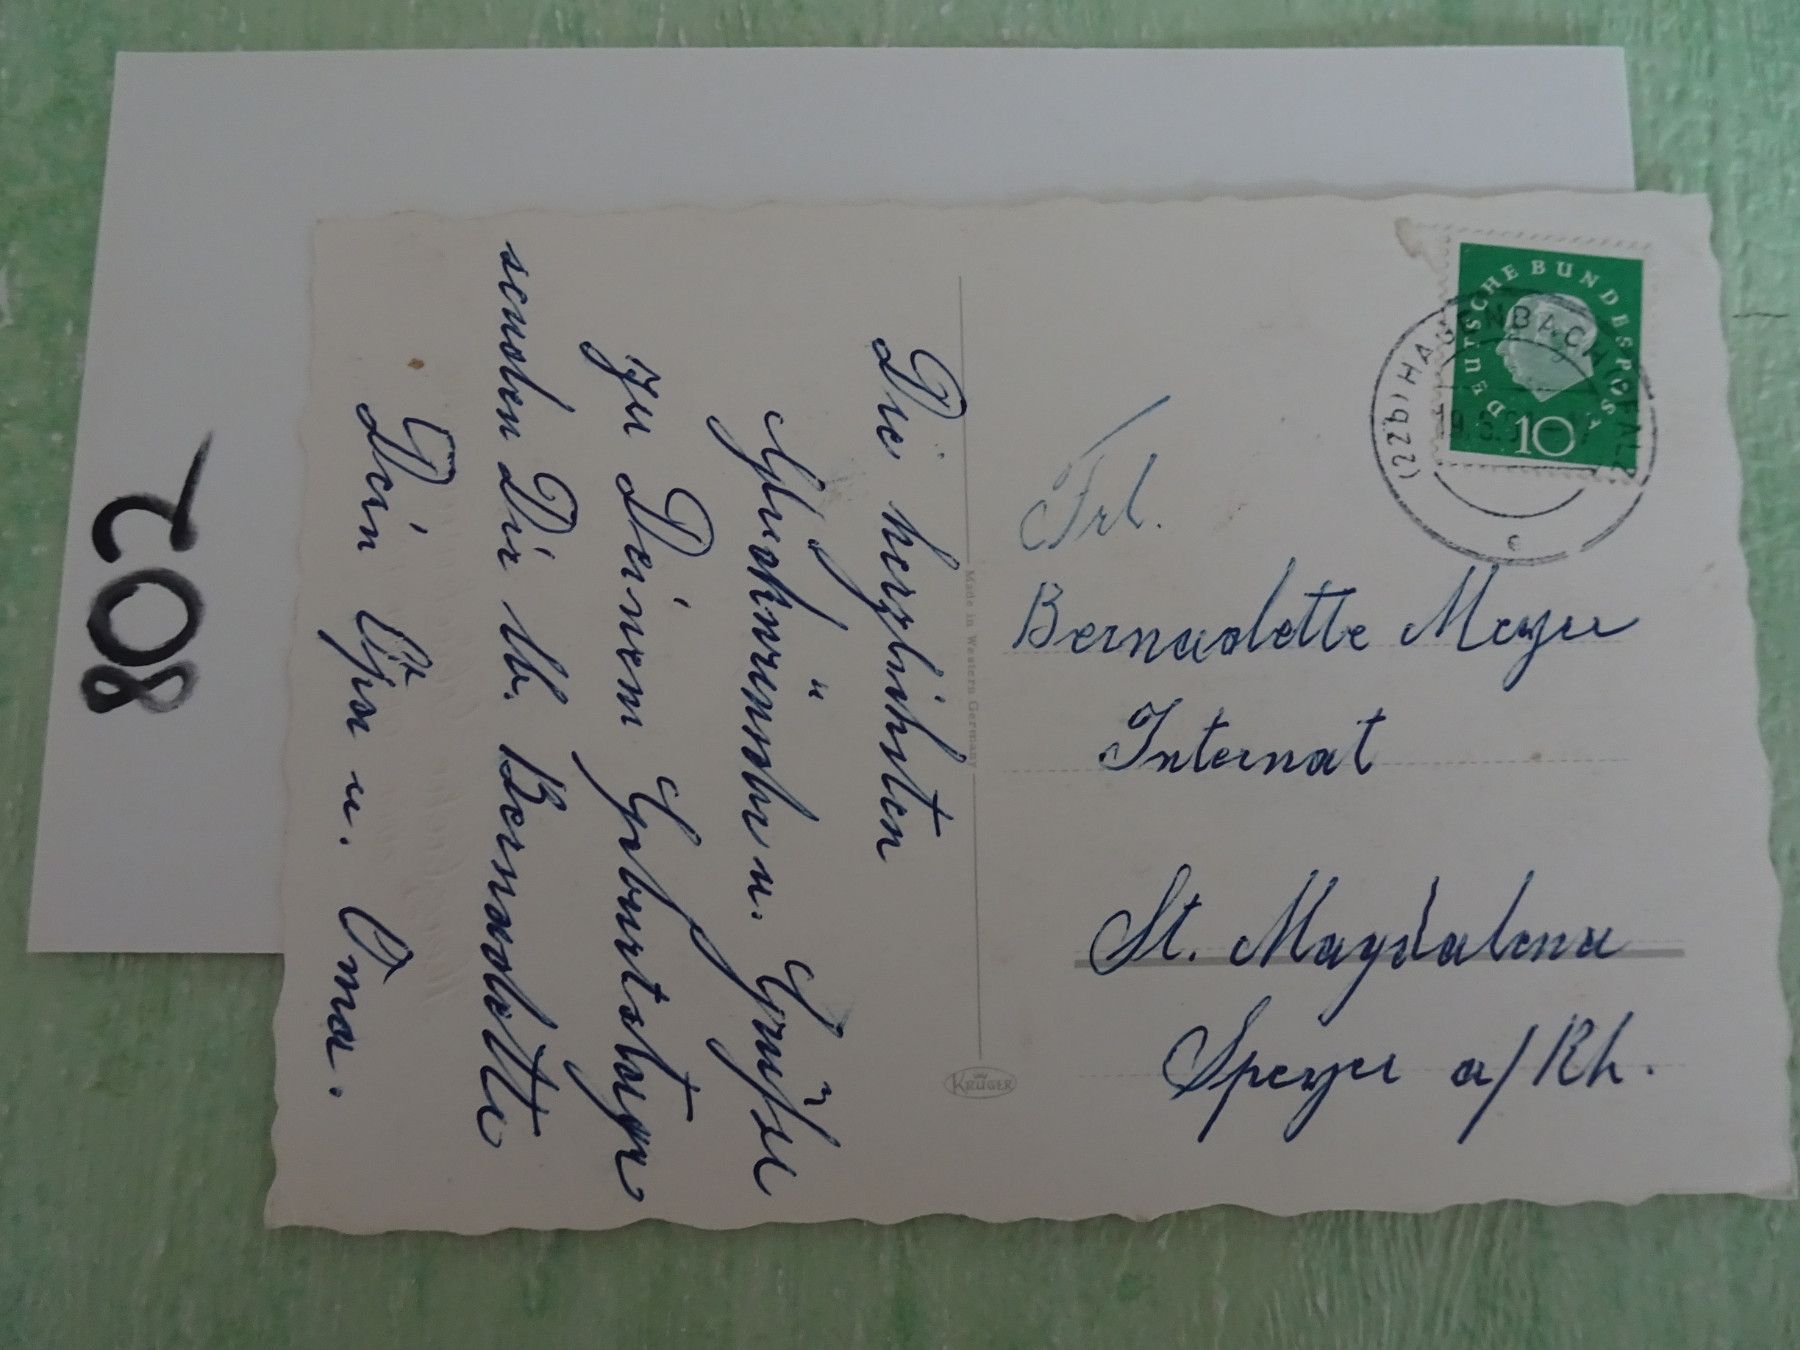 802
Die herzlichsten
Glückwünsche u. Grüße
zu Deinem Geburtstage
senden Dir lb. Bernadette
Dein Opa u. Oma.
Made in Western Germany
KRÜGER
DEUTSCHE BUNDESPOST
10
(22b) HAGENBACH (PFALZ)
e
Frl.
Bernadette Meyer
Internat
St. Magdalena
Speyer a/Rh.